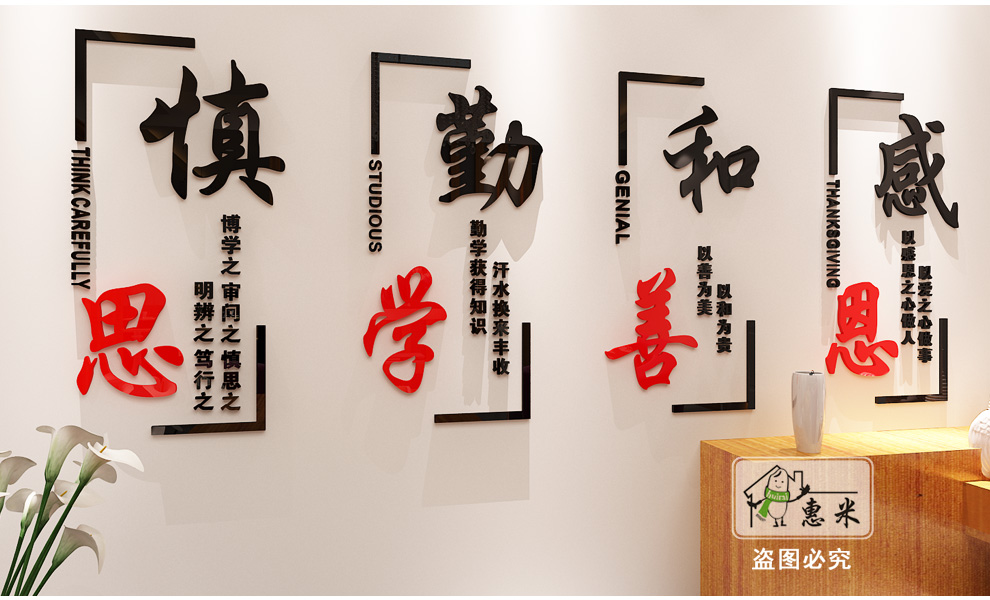 慎
思
THINK CAREFULLY
博学之 审问之 慎思之
明辨之 笃行之
勤
学
STUDIOUS
勤学获得知识
汗水换来丰收
和
善
GENIAL
以善为美
以和为贵
感
恩
THANKSGIVING
以感恩之心做人
以爱之心做事
huimi
惠米
盗图必究